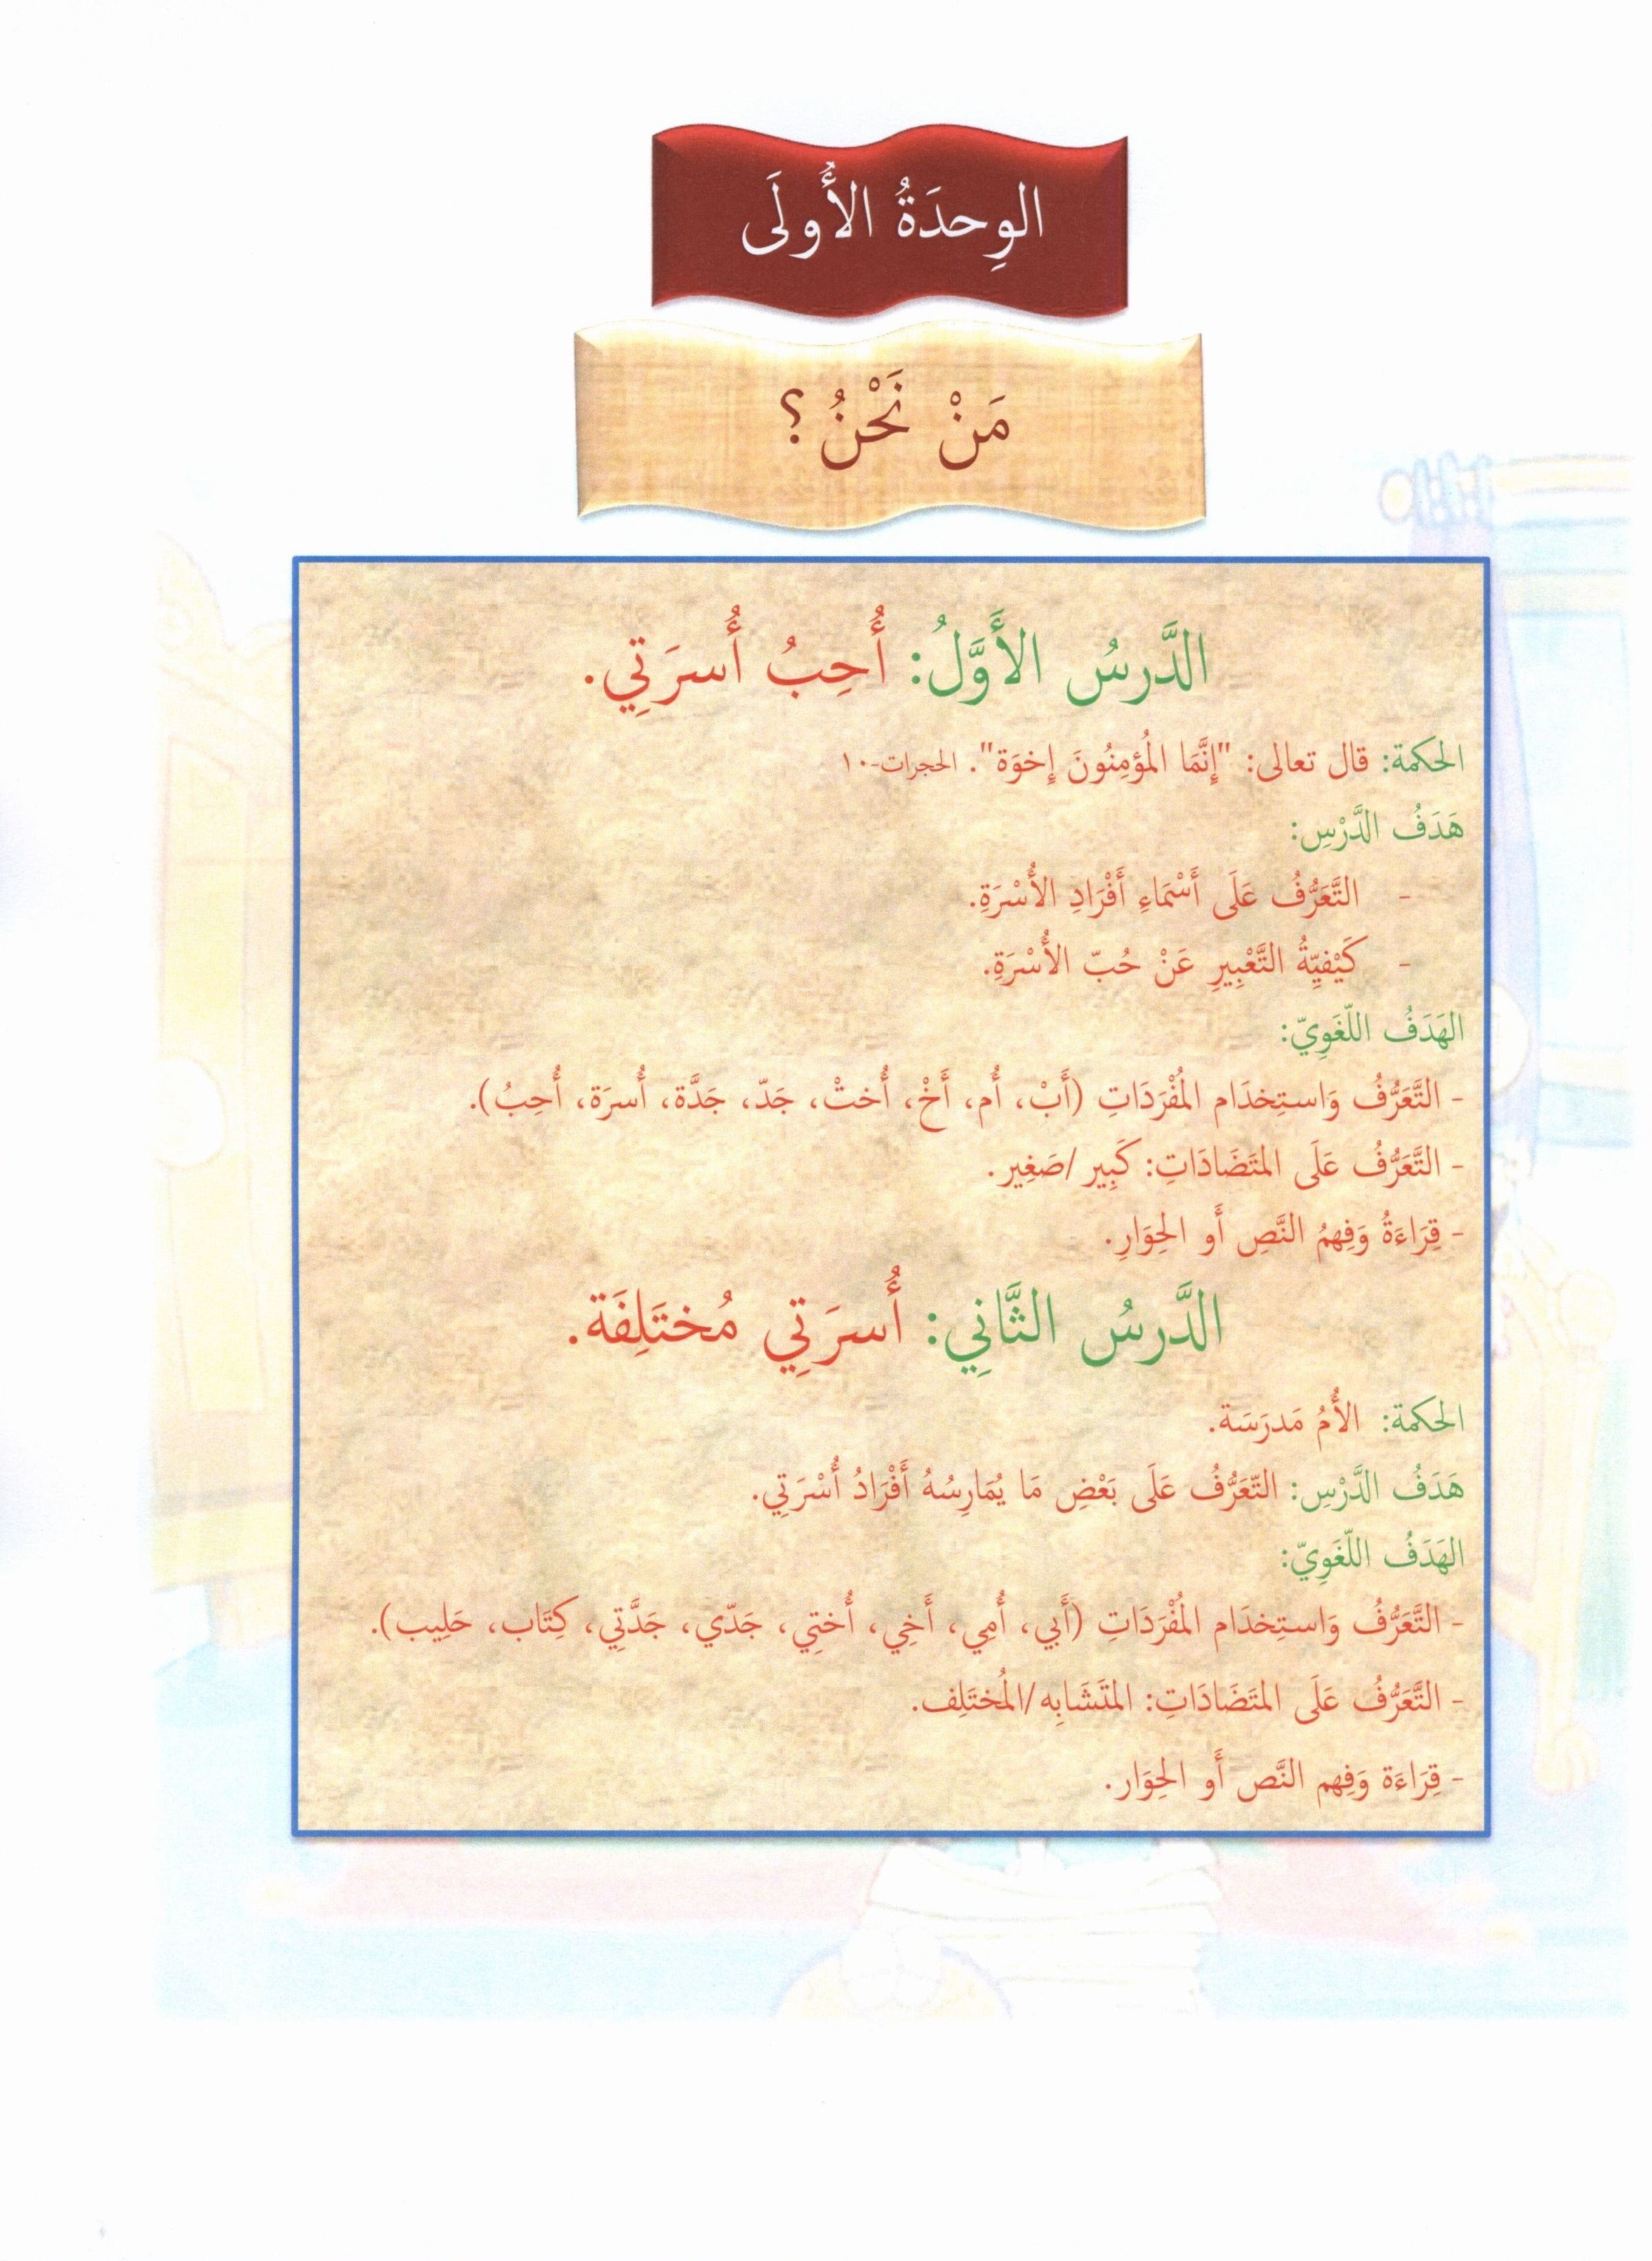 الوِحدَةُ الأُولَى
مَنْ نَحْنُ ؟
الدَّرسُ الأَوَّلُ: أُحِبُ أُسرَتِي.
الحكمة: قال تعالى: "إِنَّمَا المُؤمِنُونَ إِخوَة". الحجرات-١٠
هَدَفُ الدَّرْسِ:
- التَّعَرُّفُ عَلَى أَسْمَاءِ أَفْرَادِ الأُسْرَةِ.
- كَيْفيِّةُ التَّعْبِيرِ عَنْ حُبّ الأُسْرَةِ.
الهَدَفُ اللّغَوِيّ:
- التَّعَرُّفُ وَاستِخدَام المُفْرَدَاتِ (أَبْ، أُم، أَخْ، أُختْ، جَدّ، جَدَّة، أُسرَة، أُحِبُ).
- التَّعَرُّفُ عَلَى المتَضَادَاتِ: كَبِير/صَغِير.
- قِرَاءَةُ وَفِهمُ النَّصِ أَو الحِوَارِ.
الدَّرسُ الثَّانِي: أُسرَتِي مُختَلِفَة.
الحكمة: الأُمُ مَدرَسَة.
هَدَفُ الدَّرْسِ: التّعَرُّفُ عَلَى بَعْضِ مَا يُمَارِسُهُ أَفْرَادُ أُسْرَتِي.
الهَدَفُ اللّغَوِيّ:
- التَّعَرُّفُ وَاستِخدَام المُفْرَدَاتِ (أَبي، أُمِي، أَخِي، أُختِي، جَدّي، جَدَّتِي، كِتَاب، حَلِيب).
- التَّعَرُّفُ عَلَى المتَضَادَاتِ: المتَشَابِه/المُختَلِف.
- قِرَاءَة وَفِهم النَّص أَو الحِوَار.